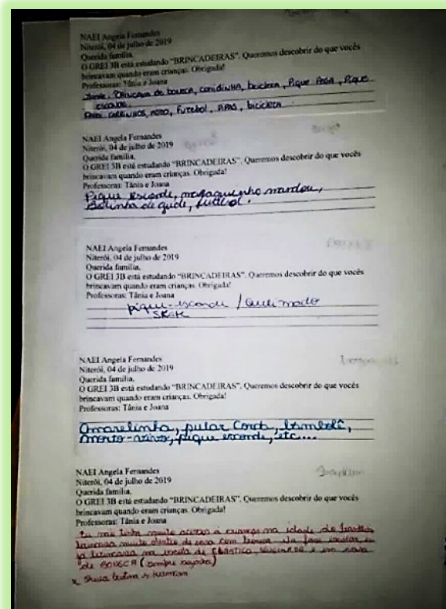 NAEI Angela Fernandes
Niterói, 04 de julho de 2019
Querida família,
O GREI 3B está estudando "BRINCADEIRAS". Queremos descobrir do que vocês
brincavam quando eram crianças. Obrigada!
Professoras: Tânia e Joana
brincava de boneca, comidinha, bicicleta, Pique Pega, Pique
esconde.
carrinhos, Futebol, PIPAS, bicicleta
NAEI Angela Fernandes
Niterói, 04 de julho de 2019
Querida família,
O GREI 3B está estudando "BRINCADEIRAS". Queremos descobrir do que vocês
brincavam quando eram crianças. Obrigada!
Professoras: Tânia e Joana
Pique esconde, macaquinho mandou,
Bolinha de gude, futebol.
NAEI Angela Fernandes
Niterói, 04 de julho de 2019
Querida família,
O GREI 3B está estudando "BRINCADEIRAS". Queremos descobrir do que vocês
brincavam quando eram crianças. Obrigada!
Professoras: Tânia e Joana
pique-esconde / queimado
SKATE
NAEI Angela Fernandes
Niterói, 04 de julho de 2019
Querida família,
O GREI 3B está estudando "BRINCADEIRAS". Queremos descobrir do que vocês
brincavam quando eram crianças. Obrigada!
Professoras: Tânia e Joana
Amarelinha, pular corda, bambolê,
morto-vivo, pique esconde, etc...
NAEI Angela Fernandes
Niterói, 04 de julho de 2019
Querida família,
O GREI 3B está estudando "BRINCADEIRAS". Queremos descobrir do que vocês
brincavam quando eram crianças. Obrigada!
Professoras: Tânia e Joana
Eu não tinha muito acesso a crianças na idade de
brincava muito dentro de casa com
brincava na escola de ELÁSTICO, e em casa
de BONECA (sempre sozinha)